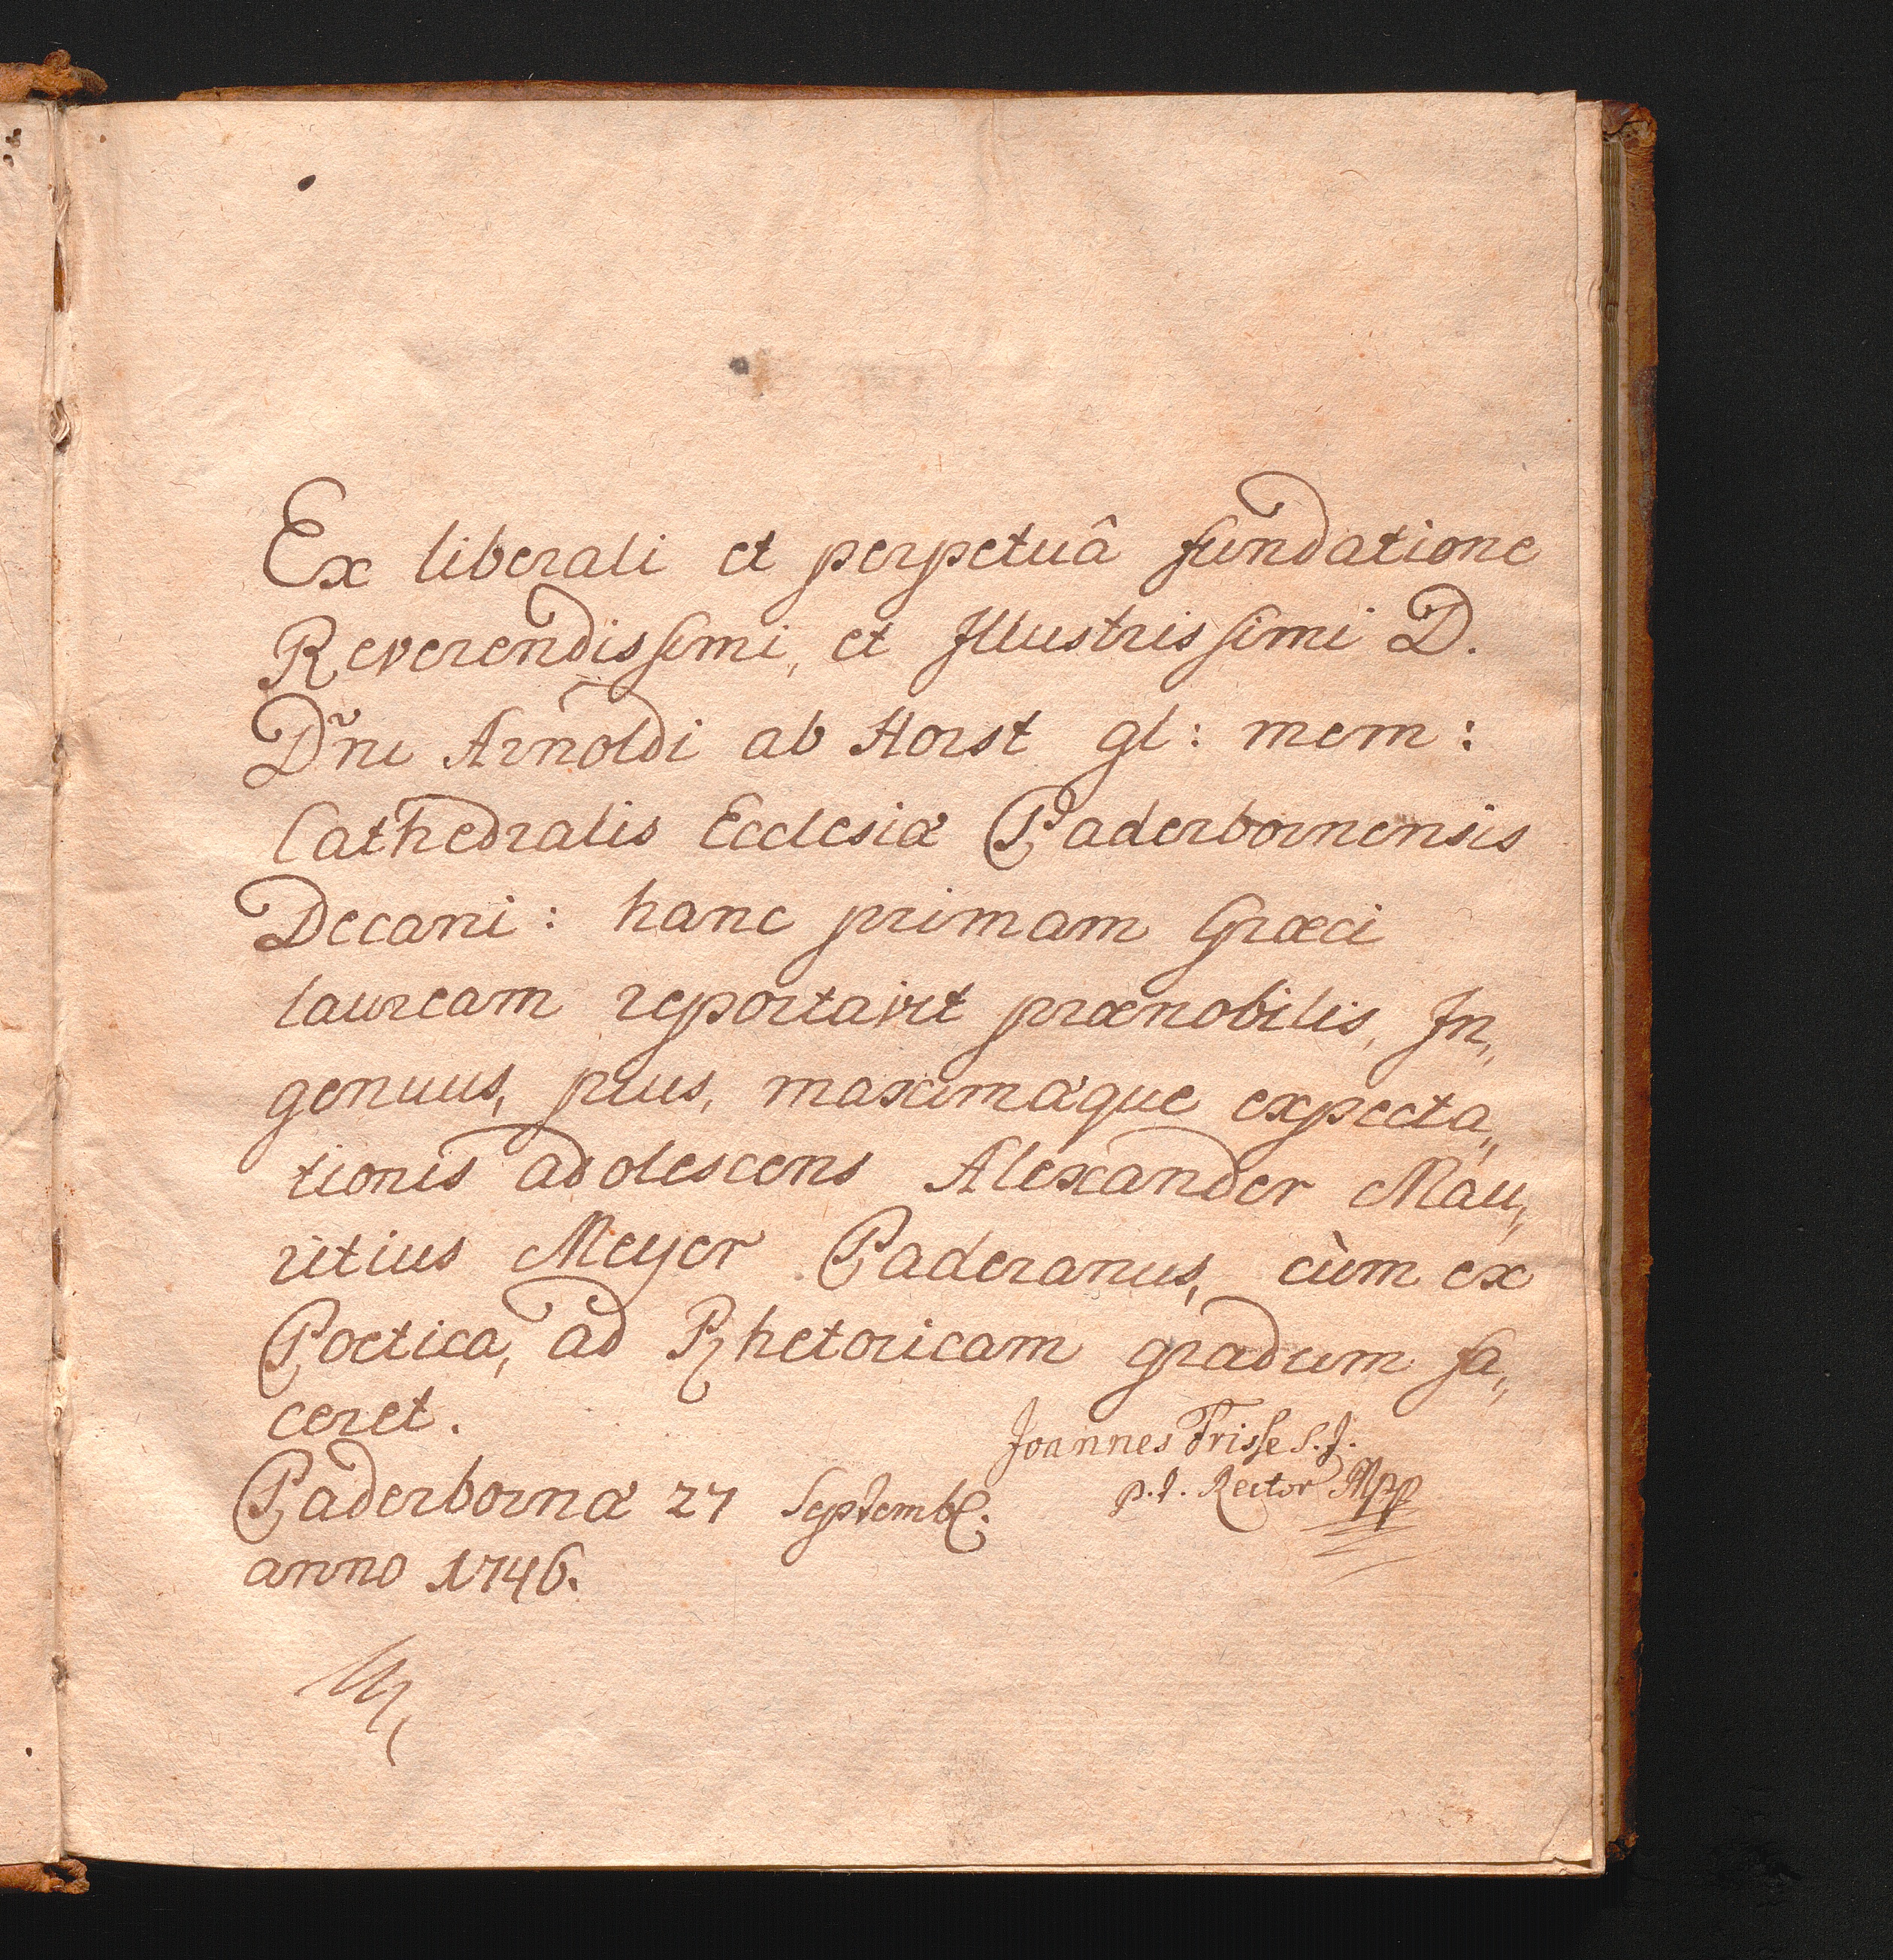 Ex liberali et perpetuâ fundatione
Reverendissimi, et Illustrissimi D.
Dñi Arnoldi ab Horst gl: mem:
Cathedralis Ecclesiæ Paderbornensis
Decani: hanc primam Græci
lauream reportavit prænobilis, In„
genuus, pius, maximæque expecta„
tionis adolescens Alexander Mau„
ritius Meyer Paderanus, cùm ex
Poetica, ad Rhetoricam gradum fa„
ceret.
Joannes Frisse S.J.
p.t. Rector Mpp
Paderbornæ 27 Septemb.
anno 1746.